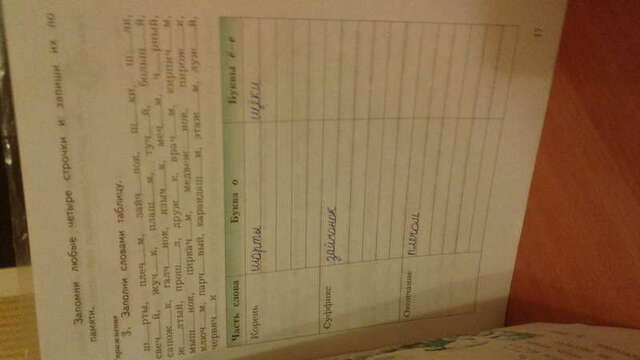 Запомни любые четыре строчки и запиши их по
памяти.
3. Заполни словами таблицу.
ш__рты, плеч__м, зайч__нок, щ__ки, ш__лк,
свеч__й, жуч__к, плащ__м, туч__й, больш__й,
сапож__к, галч__нок, языч__к, меч__м, ч__рный,
ж__лтый, прощ__л, друж__к, врач__м, кирпич__м,
мыш__нок, циркач__м, медвеж__нок, пирож__к,
ключ__м, парч__вый, карандаш__м, этаж__м, луж__й,
червяч__к
Часть слова Буква о Буквы ё–е
Корень шорты щёки
Суффикс зайчонок
Окончание плечом
17